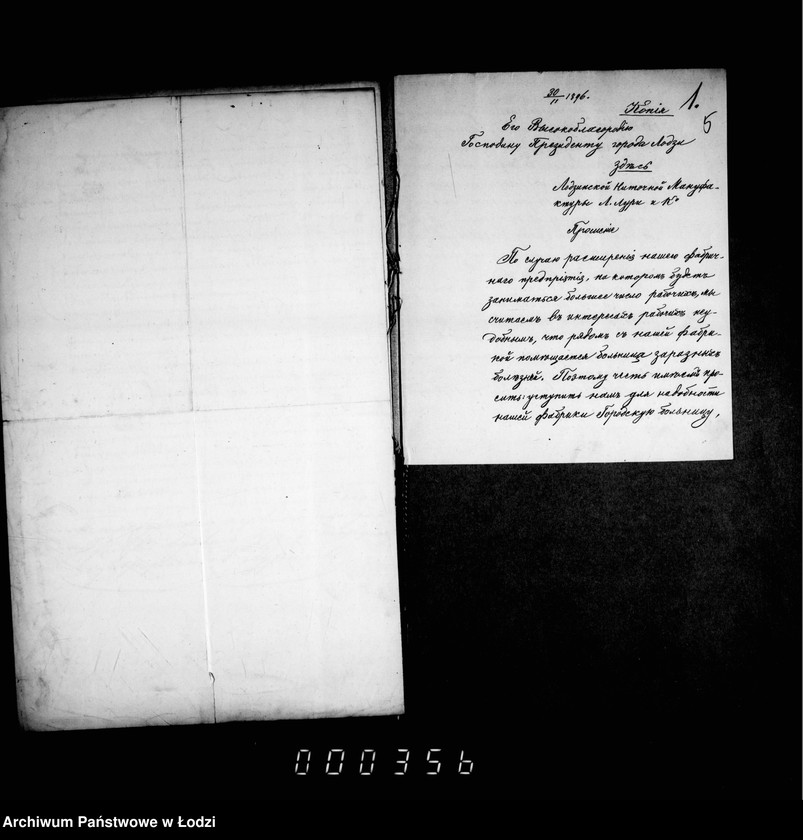 30/II 1896.
Копія
1.
5
Его Высокоблагородію
Господину Президенту города Лодзи
здѣсь
Лодзинской Ниточной Мануфа-
ктуры Л. Лури и Ко
Прошеніе
По случаю расширенія нашего фабрич-
наго предпріятія, на которомъ будетъ
заниматься большее число рабочихъ, мы
считаемъ въ интересахъ рабочихъ неу-
добнымъ, что рядомъ съ нашей фабри-
кой помѣщается больница заразныхъ
болѣзней. Поэтому честь имѣемъ про-
сить уступить намъ для надобности
нашей фабрики Городскую больницу,
000356
Archiwum Państwowe w Łodzi